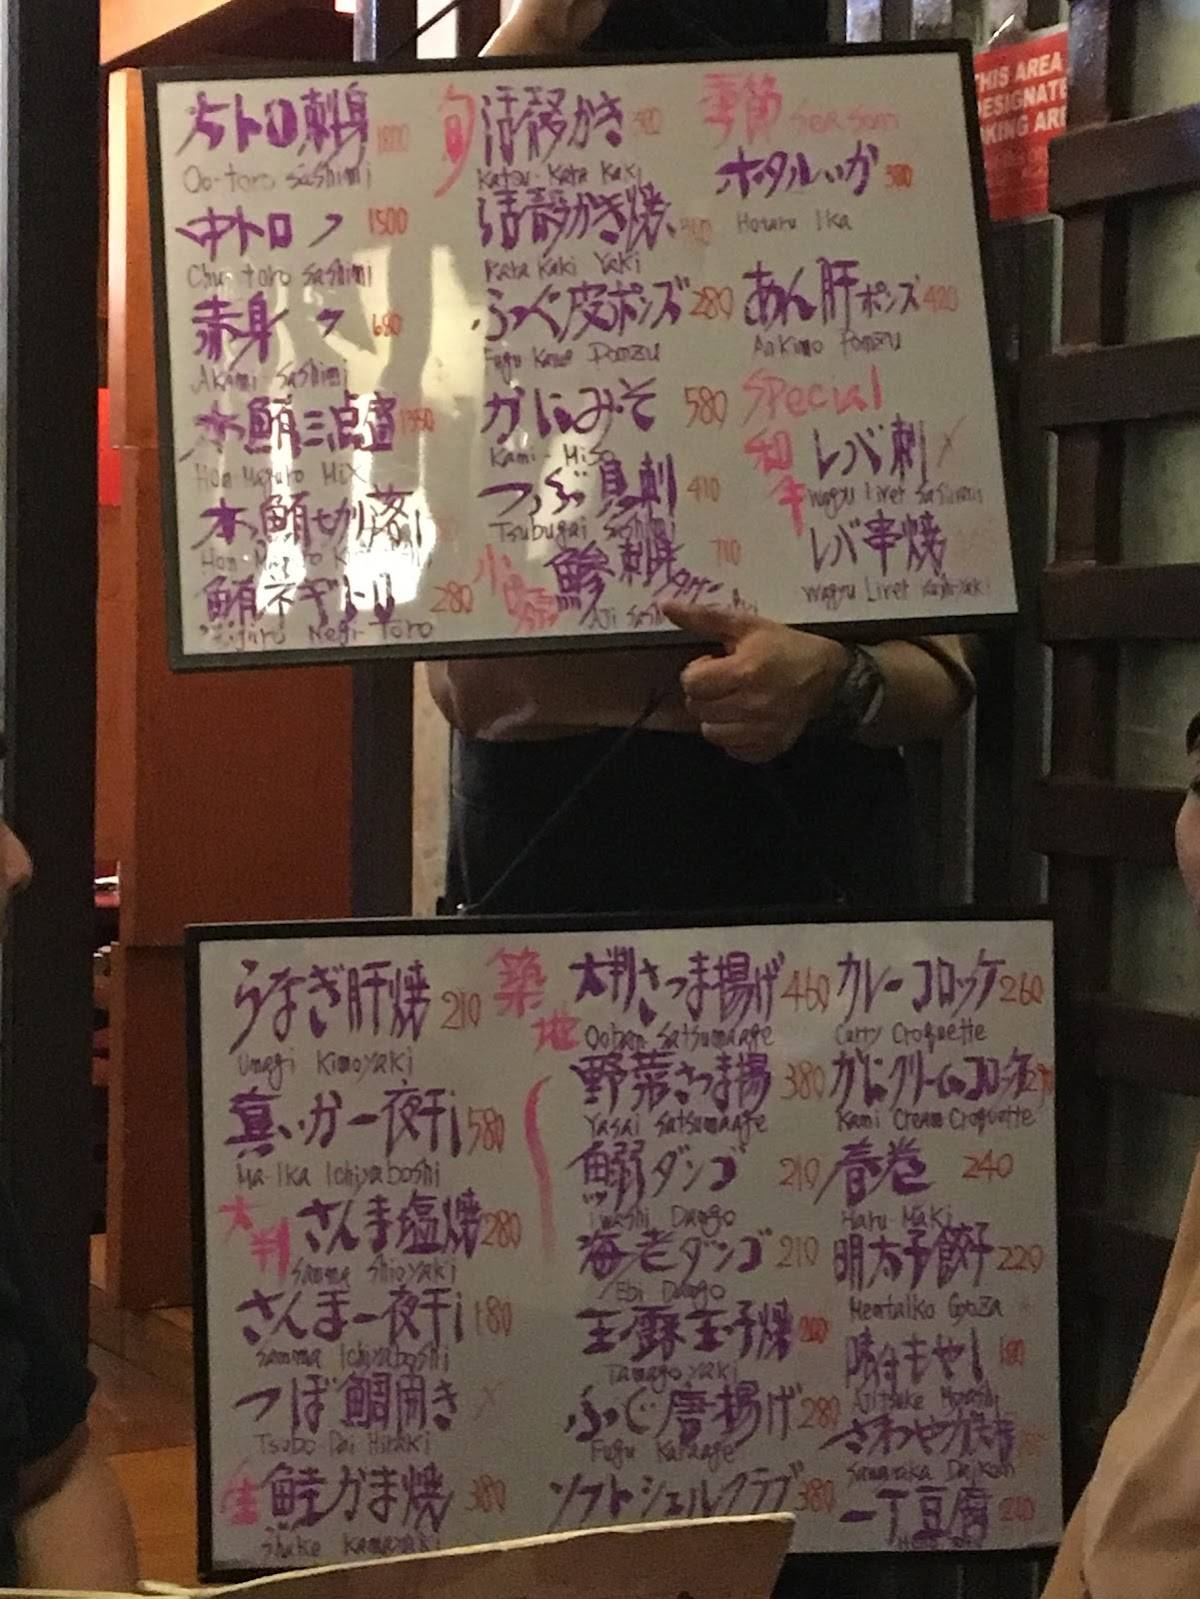 大トロ刺身 1800
Oo-toro Sashimi
中トロ 〃 1500
Chu-toro Sashimi
赤身 〃 680
Akami Sashimi
本鮪三点盛 1350
Hon Maguro Mix
本鮪切り落し
Hon
鮪ネギトロ 280
Negi-Toro
旬
活殻かき
Katsu-Kara Kaki
活殻かき焼
Kara Kaki Yaki
ふぐ皮ポンズ 280
Fugu Kawa Ponzu
かにみそ 580
Kami-Miso
つぶ貝刺 410
Tsubugai Sashimi
鯵刺身
Aji Sashi
季節 Season
ホタルいか 380
Hotaru Ika
あん肝ポンズ 420
Ankimo Ponzu
Special
和牛
レバ刺 ×
Wagyu Liver Sashimi
レバ串焼
Wagyu Liver Kushiyaki
THIS AREA
DESIGNATE
うなぎ肝焼 210
Unagi Kimoyaki
真いか一夜干し 580
Ma-Ika Ichiyaboshi
大判 さんま塩焼 280
Sanma Shioyaki
さんま一夜干し 180
Sanma Ichiyaboshi
つぼ鯛開き ×
Tsubo-Dai Hiraki
生 鮭かま焼 380
Shake Kamayaki
築地
大判さつま揚げ 460
Ooban Satsumaage
野菜さつま揚 380
Yasai Satsumaage
鰯ダンゴ 210
Iwashi Dango
海老ダンゴ 210
Ebi Dango
玉子焼
Tamago yaki
ふぐ唐揚げ 280
Fugu Karaage
ソフトシェルクラブ 380
カレーコロッケ 260
Curry Croquette
かにクリームコロッケ
Kami Cream Croquette
春巻 240
Haru-Maki
明太子餃子 220
Mentaiko Gyoza
味付もやし 180
Ajitsuke Moyashi
さわやか大根
Sawayaka Daikon
一丁豆腐 240